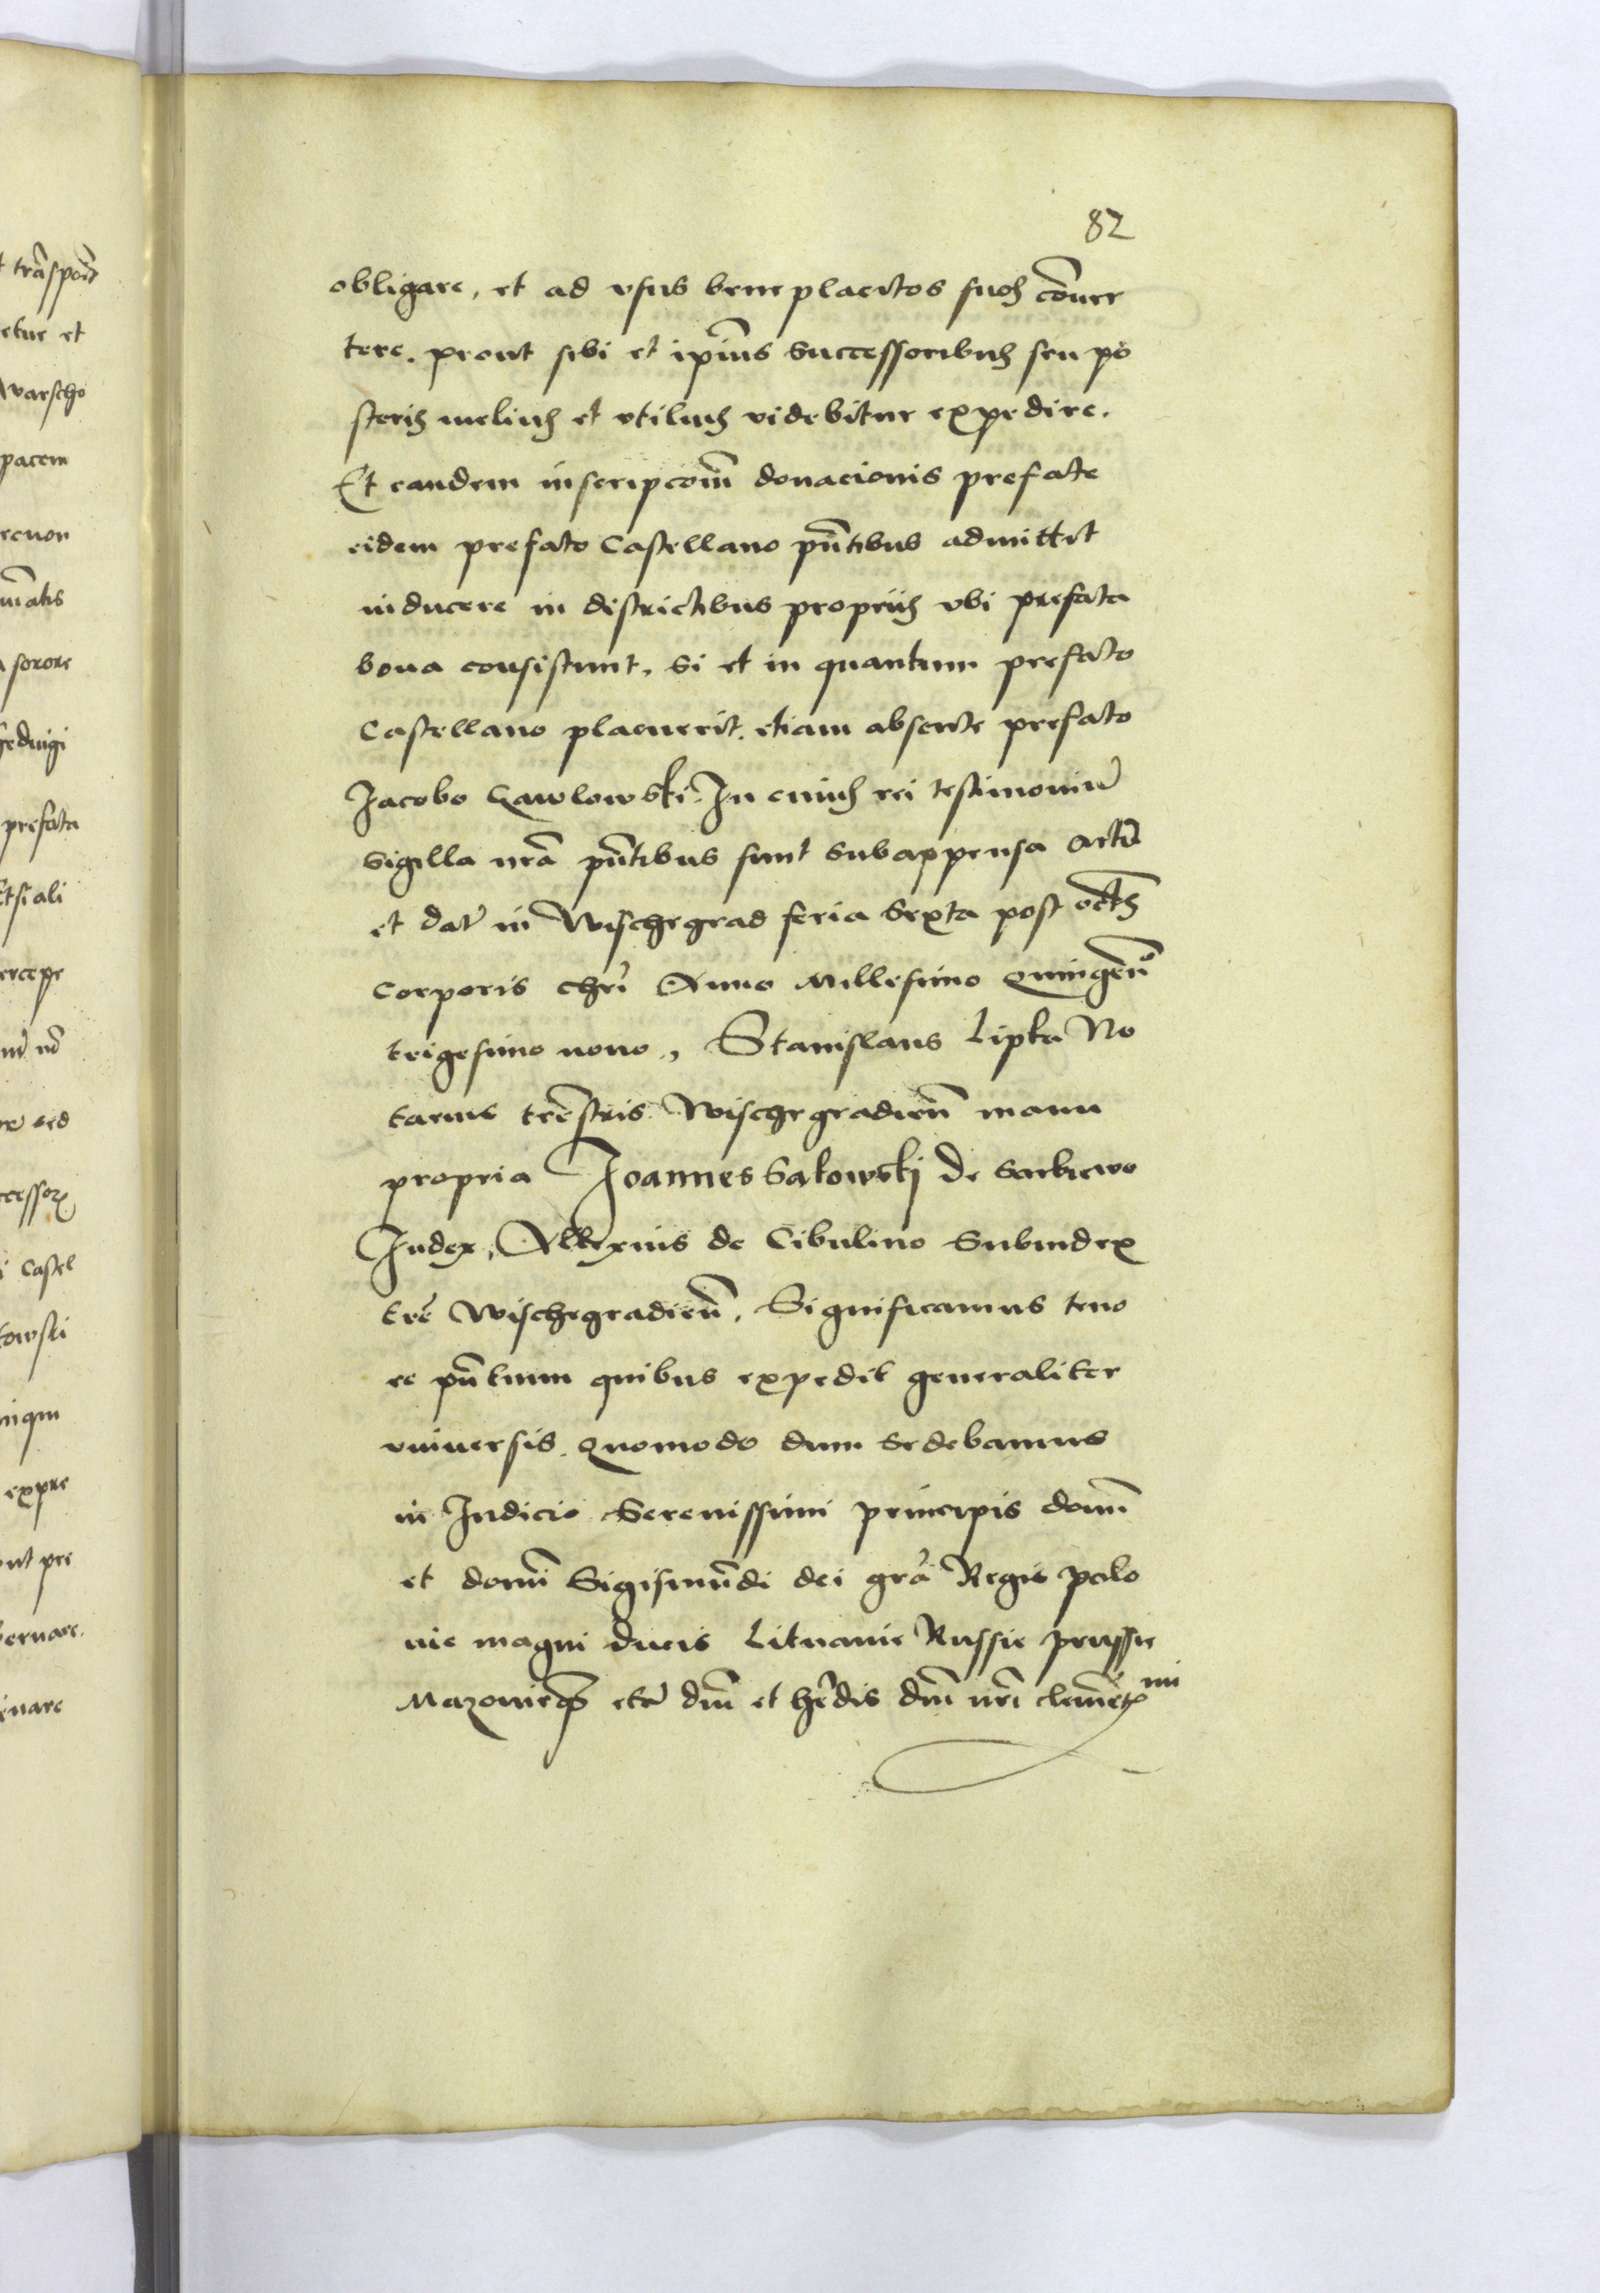 82
obligare, et ad vsus beneplacitos suos cōuer
tere. prout sibi et ip̄ius Successoribus seu po
steris melius et vtilius videbitur expedire.
Et eandem inscripcōm̄ donacionis prefate
eidem prefato Castellano pn̄tibus admittit
inducere in districtibus propriis vbi prefata
bona consistunt. Si et in quantum prefato
Castellano placuerit. etiam absente prefato
Jacobo Gawlowski. In cuius rei testimoniū
Sigilla nr̄a pn̄tibus sunt Subappensa Actū
et datū in Wischegrad feria Sexta post oct̄s
Corporis chrī Anno Millesimo Quingen̄o
trigesimo nono, Stanislaus Lipka No
tarius trēstris Wischegradien̄ manu
propria Joannes Sakowskj de
Judex, Allexius de Cibulino Subiudex
trē Wischegradien̄. Significamus teno
re pn̄tium quibus expedit generaliter
vniuersis. Quomodo dum Sedebamus
in Judicio Serenissimi principis domī
et domī Sigismūdi dei grā Regis polo
nie magni ducis Lituanie Russie prussie
Mazouieq3 etc̄ dnī et hēdis dnī nrī clemēt mi
t trāsponēt
etue et
Warscho
pacem
sorore
prefata
Etsi ali
ercepe
sed
i Castel
kowski
expre
ont pre